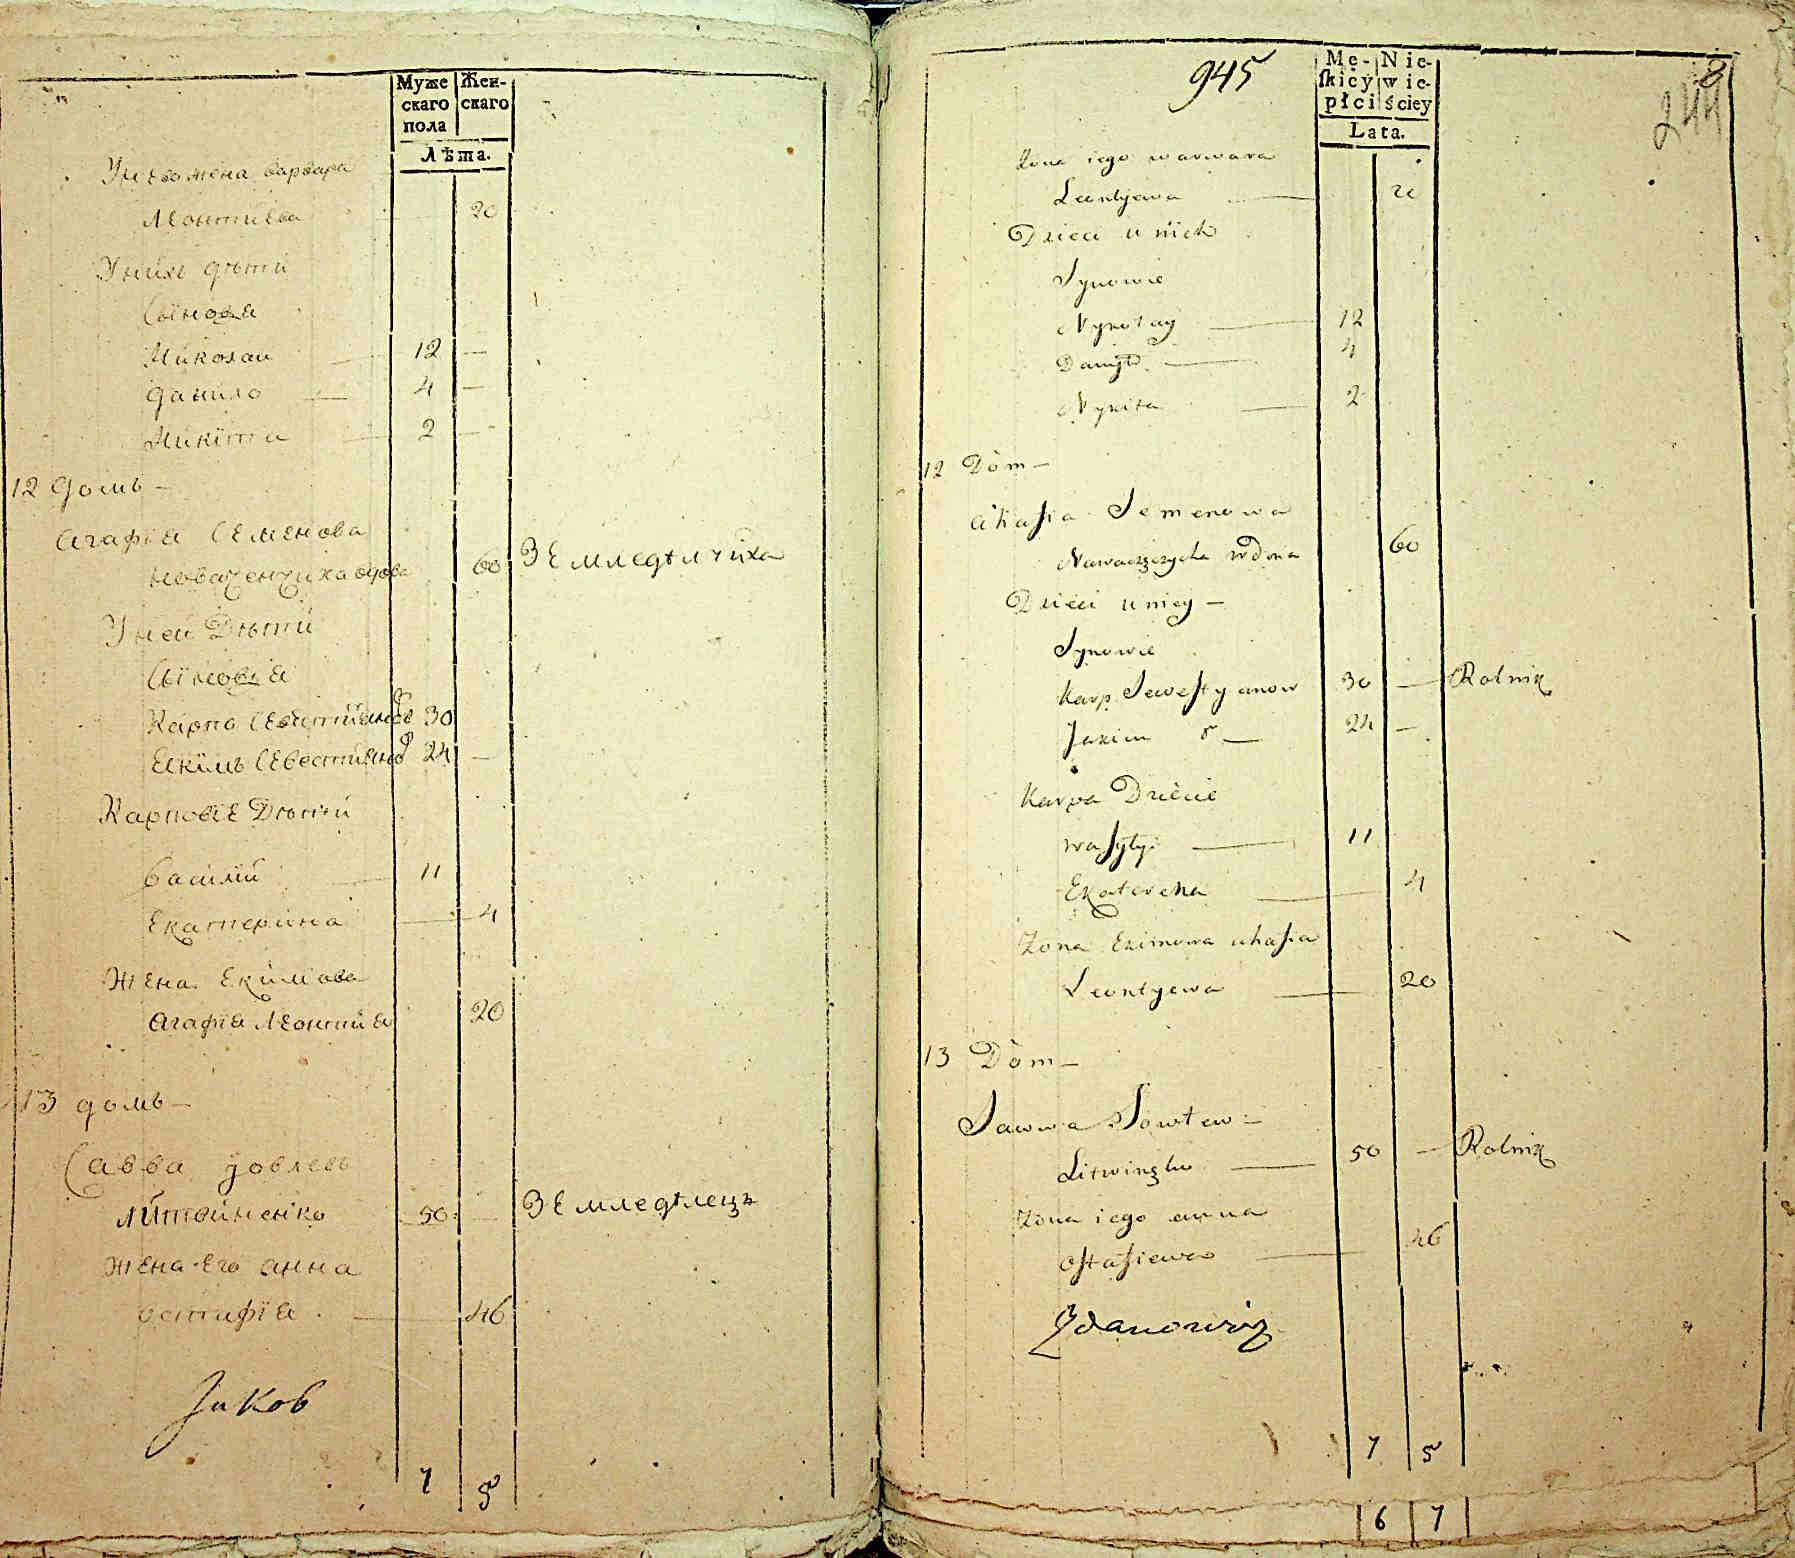 Муже
скаго
пола
Жен-
скаго
Лѣта.
У него жена варвара
Леонтиева 20
У нихъ дѣти
Сыновя
Николаи 12 —
данило 4 —
Никита 2 —
12 домъ —
агафiя Семенова
вдова 60 Земледѣлчиха
У неи Дѣти
Сыновiя
Карпо Севастиянов 30
Екимъ Севастиянов 24 —
Карповiе Дѣти
василий 11
Екатерина 4
Жена Екимова
агафiя Леонтиева 20
13 домъ —
Савва Иовлевъ
Литвиненко 50 — Земледѣлецъ
жена его анна
остафiя 46
7 5
945
8
244
Mę-
skiéy
płci
Nie-
wie-
ściey
Lata.
Żona iego warwara
Leontjewa 20
Dzieci u nich
Synowie
Nykołay 12
Danyło 4
Nykita 2
12 Dom —
ahafia Semenowa
wdowa 60
Dzieci u niey —
Synowie
Karp Sewestyanow 30 — Rolnik
Jakim 24 —
Karpa Dziécie
wasyly 11
Ekaterena 4
Żona Ekimowa ahafia
Leontyewa 20
13 Dom —
Sawwa Jowlew
50 — Rolnik
Żona iego anna
46
7 5
6 7